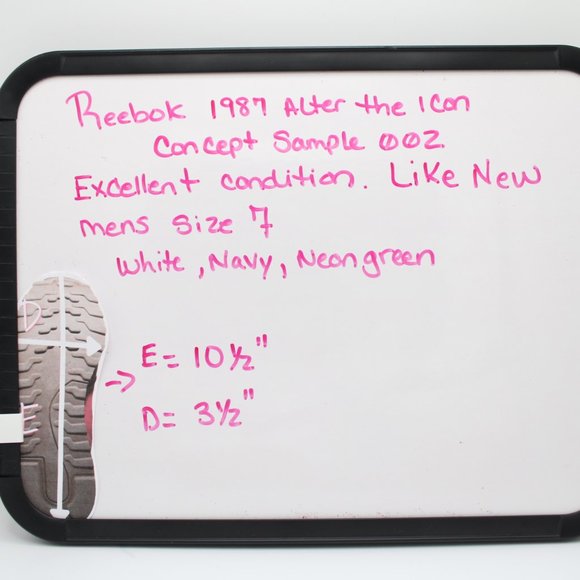 Reebok 1987 Alter the Icon
Concept Sample 002
Excellent condition. Like New
mens size 7
White, Navy, Neongreen
D
E
E = 10 1/2"
D = 3 1/2"